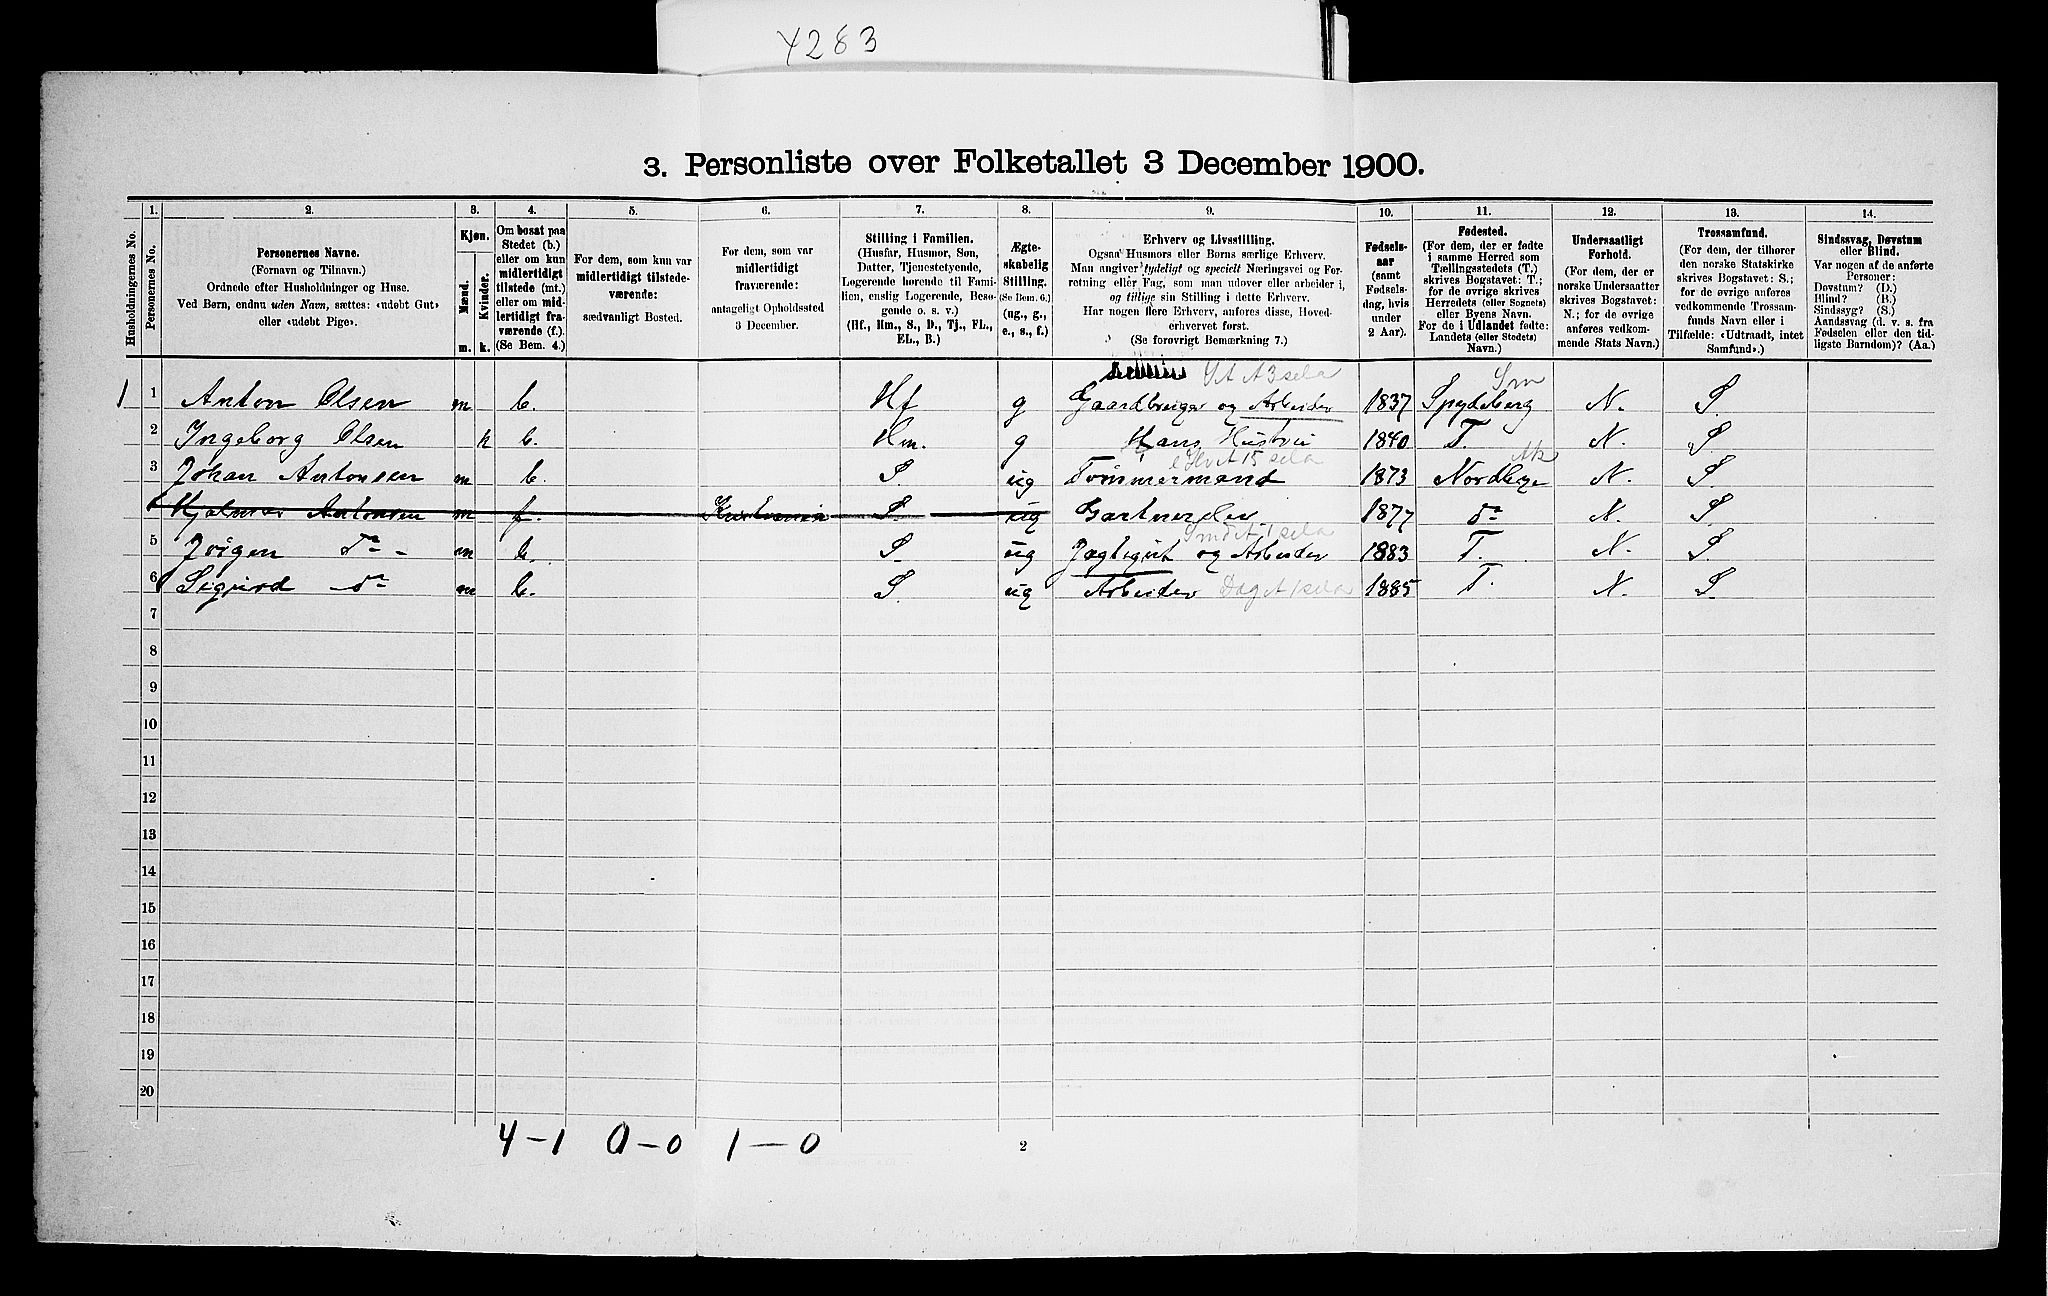 4283
3. Personliste over Folketallet 3 December 1900.
Husholdningernes No.
1.
Personernes No.
2.
Personernes Navne.
(Fornavn og Tilnavn.)
Ordnede efter Husholdninger og Huse.
Ved Børn, endnu uden Navn, sættes: «udøbt Gut»
eller «udøbt Pige».
3.
Kjøn.
Mænd.
Kvinder.
m. k.
4.
Om bosat paa
Stedet (b.)
eller om kun
midlertidigt
tilstede (mt.)
eller om mid-
lertidigt fra-
værende (f.).
(Se Bem. 4.)
5.
For dem, som kun var
midlertidigt tilstede-
værende:
sædvanligt Bosted.
6.
For dem, som var
midlertidigt
fraværende:
antageligt Opholdssted
3 December.
7.
Stilling i Familien.
(Husfar, Husmor, Søn,
Datter, Tjenestetyende,
Logerende hørende til Fami-
lien, enslig Logerende, Besø-
gende o. s. v.)
(Hf., Hm., S., D., Tj., FL.,
EL., B.)
8.
Ægte-
skabelig
Stilling.
(Se Bem. 6.)
(ug., g.,
e., s., f.)
9.
Erhverv og Livsstilling.
Ogsaa Husmors eller Børns særlige Erhverv.
Man angiver tydeligt og specielt Næringsvei og For-
retning eller Fag, som man udover eller arbeider i,
og tillige sin Stilling i dette Erhverv.
Har nogen flere Erhverv, anføres disse, Hoved-
erhvervet først.
(Se forøvrigt Bemærkning 7.)
10.
Fødsels-
aar
(samt
Fødsels-
dag, hvis
under
2 Aar).
11.
Fødested.
(For dem, der er fødte
i samme Herred som
Tællingsstedets (T.)
skrives Bogstavet: T.;
for de øvrige skrives
Herredets (eller Sognets)
eller Byens Navn.
For de i Udlandet fødte:
Landets (eller Stedets)
Navn.)
12.
Undersaatligt
Forhold.
(For dem, der er
norske Undersaatter
skrives Bogstavet:
N.; for de øvrige
anføres vedkom-
mende Stats Navn.)
13.
Trossamfund.
(For dem, der tilhører
den norske Statskirke
skrives Bogstavet: S.;
for de øvrige anføres
vedkommende Trossam-
funds Navn eller i
Tilfælde: «Udtraadt, intet
Samfund».)
14.
Sindssvag, Døvstum
eller Blind.
Var nogen af de anførte
Personer:
Døvstum? (D.)
Blind? (B.)
Sindssyg? (S.)
Aandssvag (d. v. s. fra
Fødselen eller den tid-
ligste Barndom)? (Aa.)
1 1 Anton Olsen m b. Hf g Gaardbruger og Arbeider 1837 Spydeberg Sm N. S.
2 Ingeborg Olsen k b. Hm. g Hans Hustru 1840 T. N. S.
3 Johan Antonsen m b. S. ug Tømmermand 1873 Nordbye Ak N. S.
Hjalmar Antonsen m f. Kristiania S. ug Gartnerelev 1877 do N. S
5 Jørgen do - m b. S. ug Jagtegut og Arbeider 1883 T. N. S.
6 Sigurd do m b. S. ug Arbeider 1885 T. N. S.
7
8
9
10
11
12
13
14
15
16
17
18
19
20
4-1 0-0 1-0
2